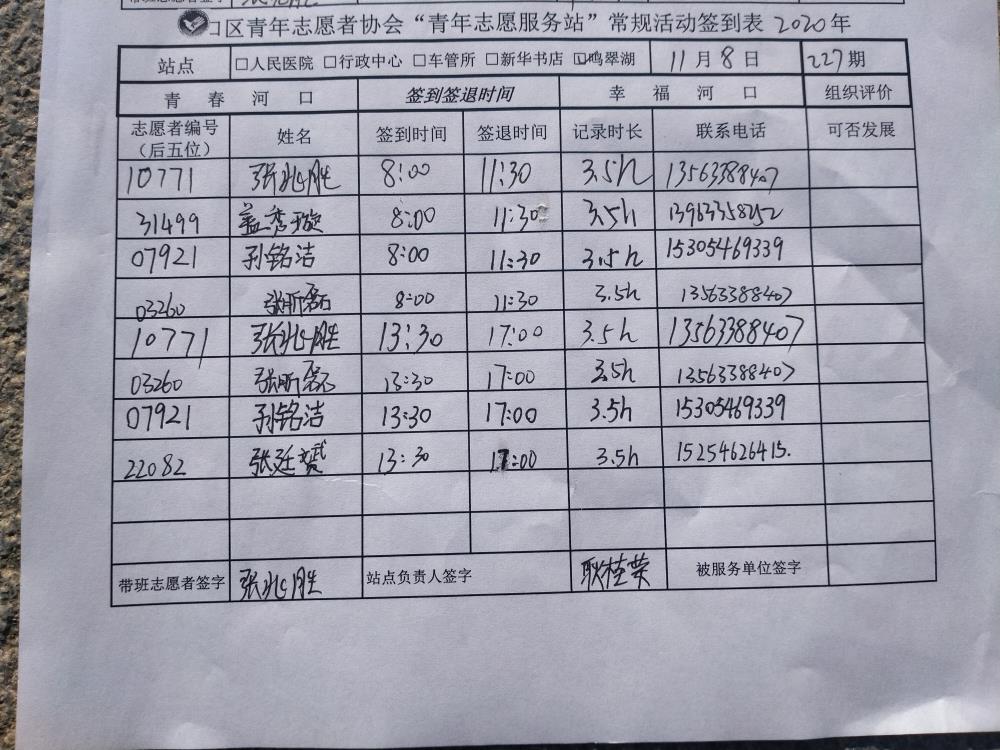 口区青年志愿者协会“青年志愿服务站”常规活动签到表 2020年
站点 □人民医院 □行政中心 □车管所 □新华书店 ☑鸣翠湖 11月8日 227期
青春河口 签到签退时间 幸福河口 组织评价
志愿者编号（后五位） 姓名 签到时间 签退时间 记录时长 联系电话 可否发展
10771 张兆胜 8:00 11:30 3.5h 13563388407
31499 盖秀璇 8:00 11:30 3.5h 13963358252
07921 孙铭洁 8:00 11:30 3.5h 15305469339
03260 张昕磊 8:00 11:30 3.5h 13563388407
10771 张兆胜 13:30 17:00 3.5h 13563388407
03260 张昕磊 13:30 17:00 3.5h 13563388407
07921 孙铭洁 13:30 17:00 3.5h 15305469339
22082 张廷赟 13:30 17:00 3.5h 15254626415.
带班志愿者签字 张兆胜 站点负责人签字 耿桂荣 被服务单位签字